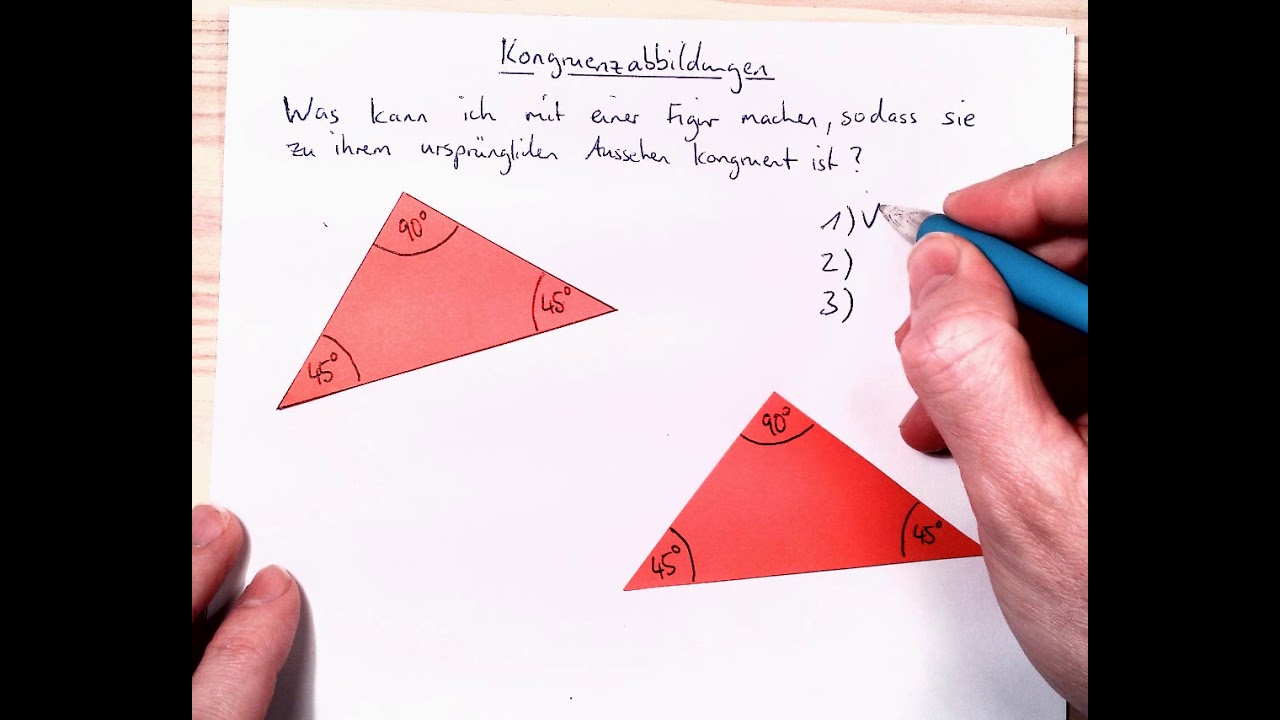 Kongruenzabbildungen
Was kann ich mit einer Figur machen, sodass sie
zu ihrem ursprünglichen Aussehen kongruent ist?
1) V
2)
3)
90°
45°
45°
90°
45°
45°